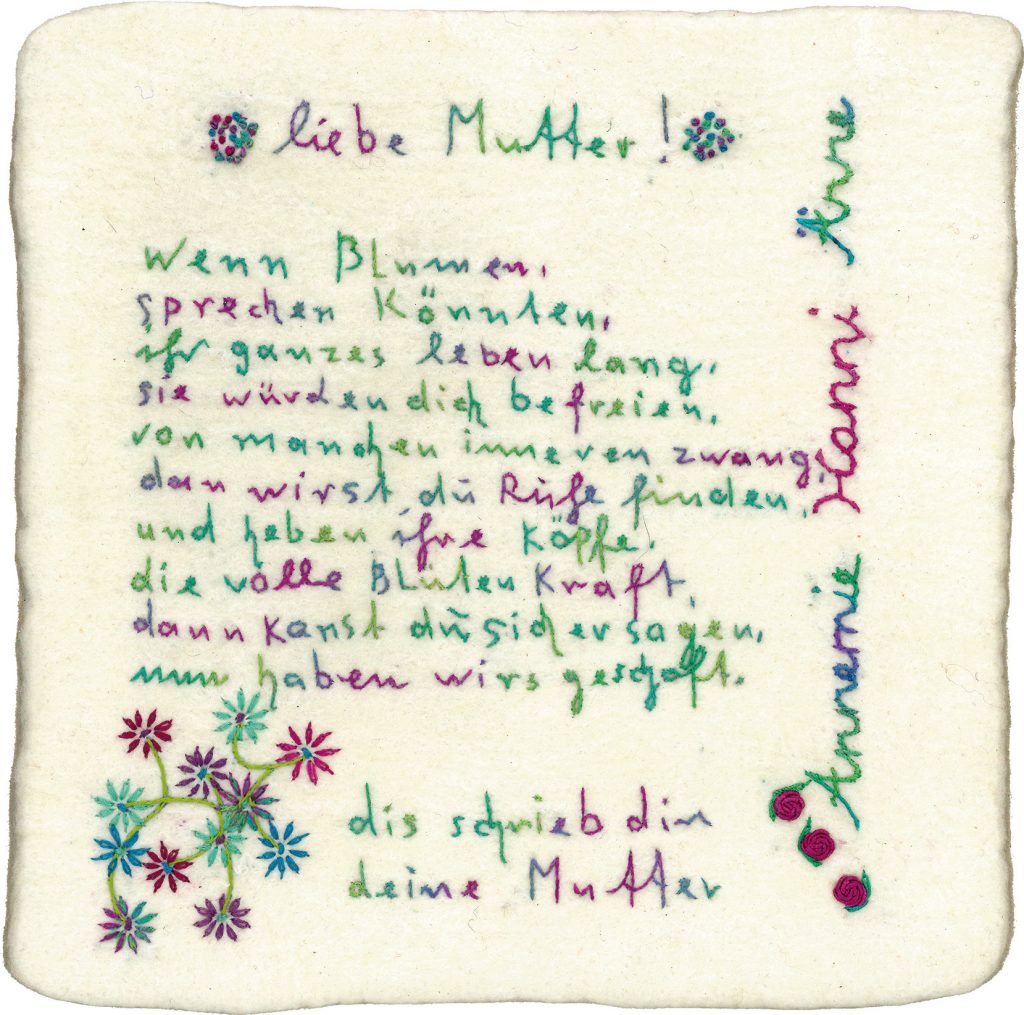 liebe Mutter!
Wenn Blumen,
sprechen Könnten,
ihr ganzes leben lang,
sie würden dich befreien,
von manchen inneren zwang,
dan wirst du Ruhe finden,
und heben ihre Köpfe,
die volle Blüten Kraft,
dann Kanst du sicher sagen,
nun haben wirs geschaft.
dis schrieb dir
deine Mutter
Annemie Hanni Änne